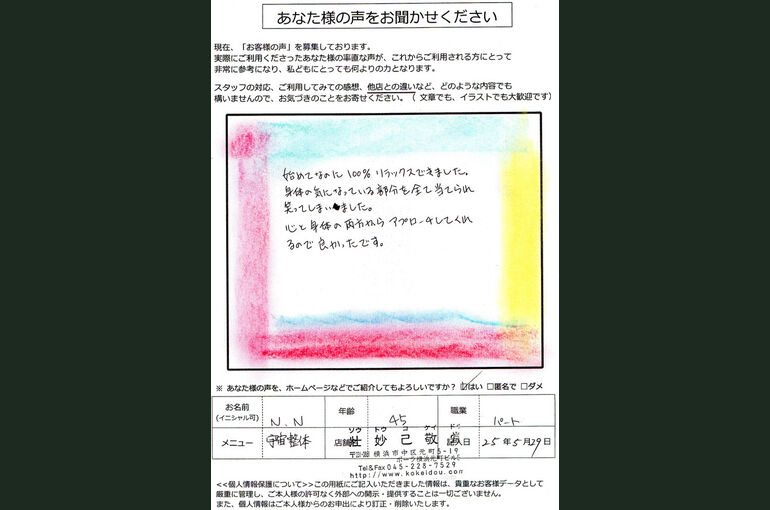 あなた様の声をお聞かせください
現在、「お客様の声」を募集しております。
実際にご利用くださったあなた様の率直な声が、これからご利用される方にとって
非常に参考になり、私どもにとっても何よりの力となります。
スタッフの対応、ご利用してみての感想、他店との違いなど、どのような内容でも
構いませんので、お気づきのことをお寄せください。（ 文章でも、イラストでも大歓迎です）
始めてなのに 100% リラックスできました。
身体の気になっている部分を全て当てられ
笑ってしまいました。
心と身体の両方から アプローチしてくれ
るので良かったです。
※ あなた様の声を、ホームページなどでご紹介してもよろしいですか？ ☑はい □匿名で □ダメ
お名前 (イニシャル可) N.N 年齢 45 職業 パート
メニュー 宇宙整体 店舗 記入日 25年5月29日
ソウ トウ コ ケイ ドウ
壮 妙 己 敬 堂
横浜市中区元町5-19
ポーラ横浜元町ビル
Tel&Fax 045-228-7529
http://www.kokeidou.com
<<個人情報保護について>>この用紙にご記入いただきました情報は、貴重なお客様データとして
厳重に管理し、ご本人様の許可なく外部への開示・提供することは一切ございません。
また、個人情報はご本人様からのお申出により訂正・削除いたします。